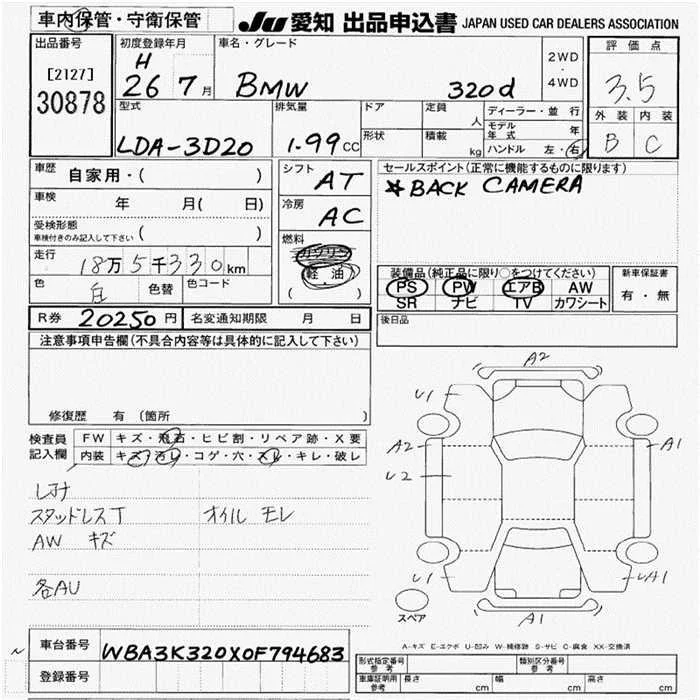 車内保管・守衛保管
JU 愛知 出品申込書 JAPAN USED CAR DEALERS ASSOCIATION
出品番号
[2127]
30878
初度登録年月
H
26 7月
車名・グレード
BMW 320d
2WD
・
4WD
評価点
3.5
外装 内装
B C
型式
LDA-3D20
排気量
1.99 CC
ドア
形状
定員
人
積載
kg
ディーラー・並行
モデル年式 年
ハンドル 左・右
車歴
自家用・( )
車検
年 月( 日)
受検形態
車検付きのみ記入して下さい ( )
走行
18万5千330km
色 白 色替 色コード
シフト
AT
冷房
AC
燃料
ガソリン
軽油
( )
セールスポイント(正常に機能するものに限ります)
*BACK CAMERA
装備品(純正品に限り○をつけてください)
PS PW エアB AW
SR ナビ TV カワシート
新車保証書
有・無
R券 20250円 名変通知期限 月 日
後日品
注意事項申告欄(不具合内容等は具体的に記入して下さい)
修復歴 有(箇所 )
検査員
記入欄
FW キズ・飛石・ヒビ割・リペア跡・X要
内装 キズ・汚レ・コゲ・穴・スレ・キレ・破レ
スタッドレスT オイルモレ
AW キズ
各AU
A2
U1
A2
A1
U2
U1
UA1
A1
スペア
A-キズ E-エクボ U-凹み W-補修跡 S-サビ C-腐食 XX-交換済
車台番号
WBA3K320X0F794683
登録番号
形式指定番号
参考
類別区分番号
参考
車庫証明用
参考
長さ cm 幅 cm 高さ cm